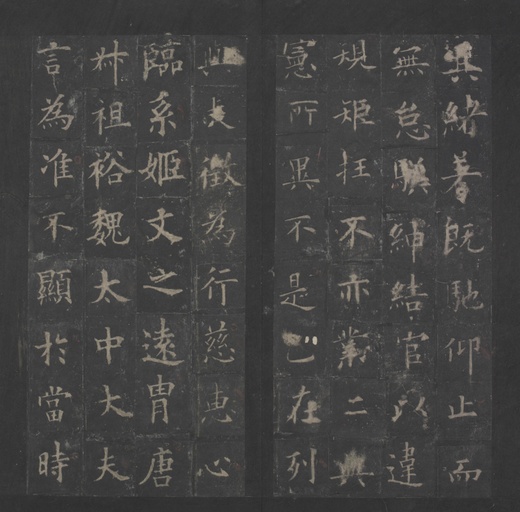 其緒著既馳仰止而
無怠紳結官以違
規矩抂不亦業二
憲所異不是己在列
典夫徵為行慈惠心
臨系姬文之遠胄唐
叔祖裕魏太中大夫
言為准不顯於當時